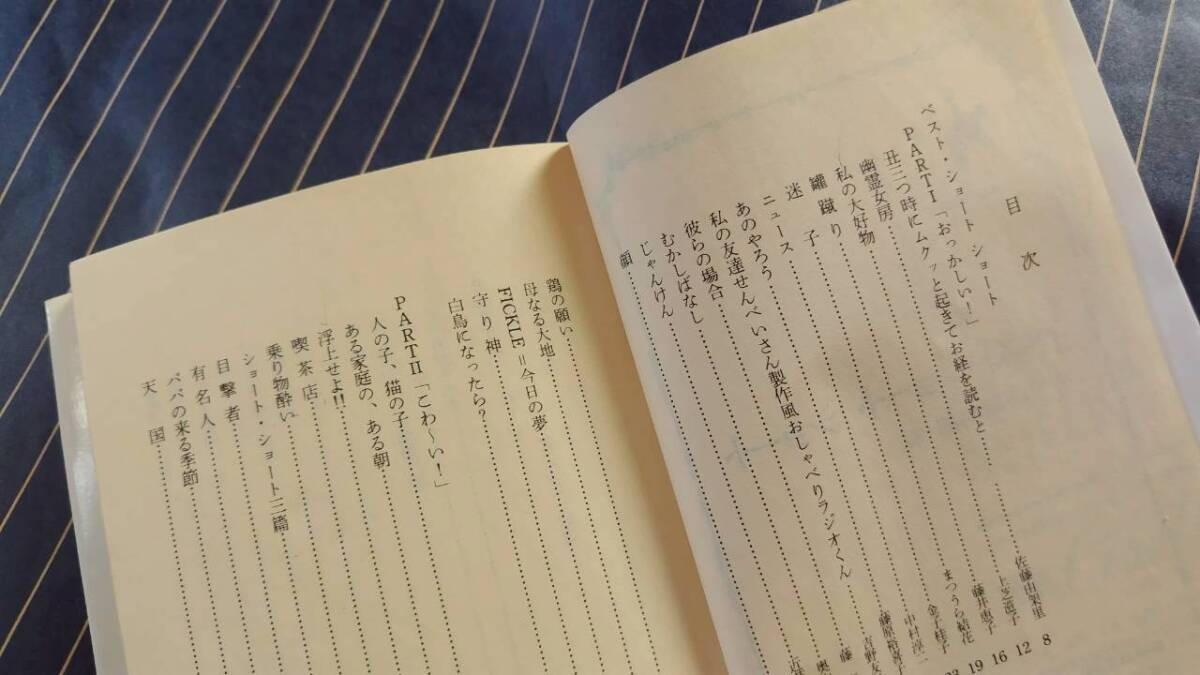 目次
ベスト・ショート ショート
PARTI「おっかしい！」
丑三つ時にムクッと起きてお経を読むと
幽霊女房
私の大好物
罐蹴り
迷子
ニュース
あのやろう
私の友達せんべいさん製作風おしゃべりラジオくん
彼らの場合
むかしばなし
じゃんけん
顔
佐藤由架里
藤井恵子
まつうら結花
金子桂子
中村淳二
8
12
16
19
鶏の願い
母なる大地
FICKLE＝今日の夢
守り神
白鳥になったら？
PARTII「こわ〜い！」
人の子、猫の子
ある家庭の、ある朝
浮上せよ!!
喫茶店
乗り物酔い
ショート・ショート三篇
目撃者
有名人
パパの来る季節
天国